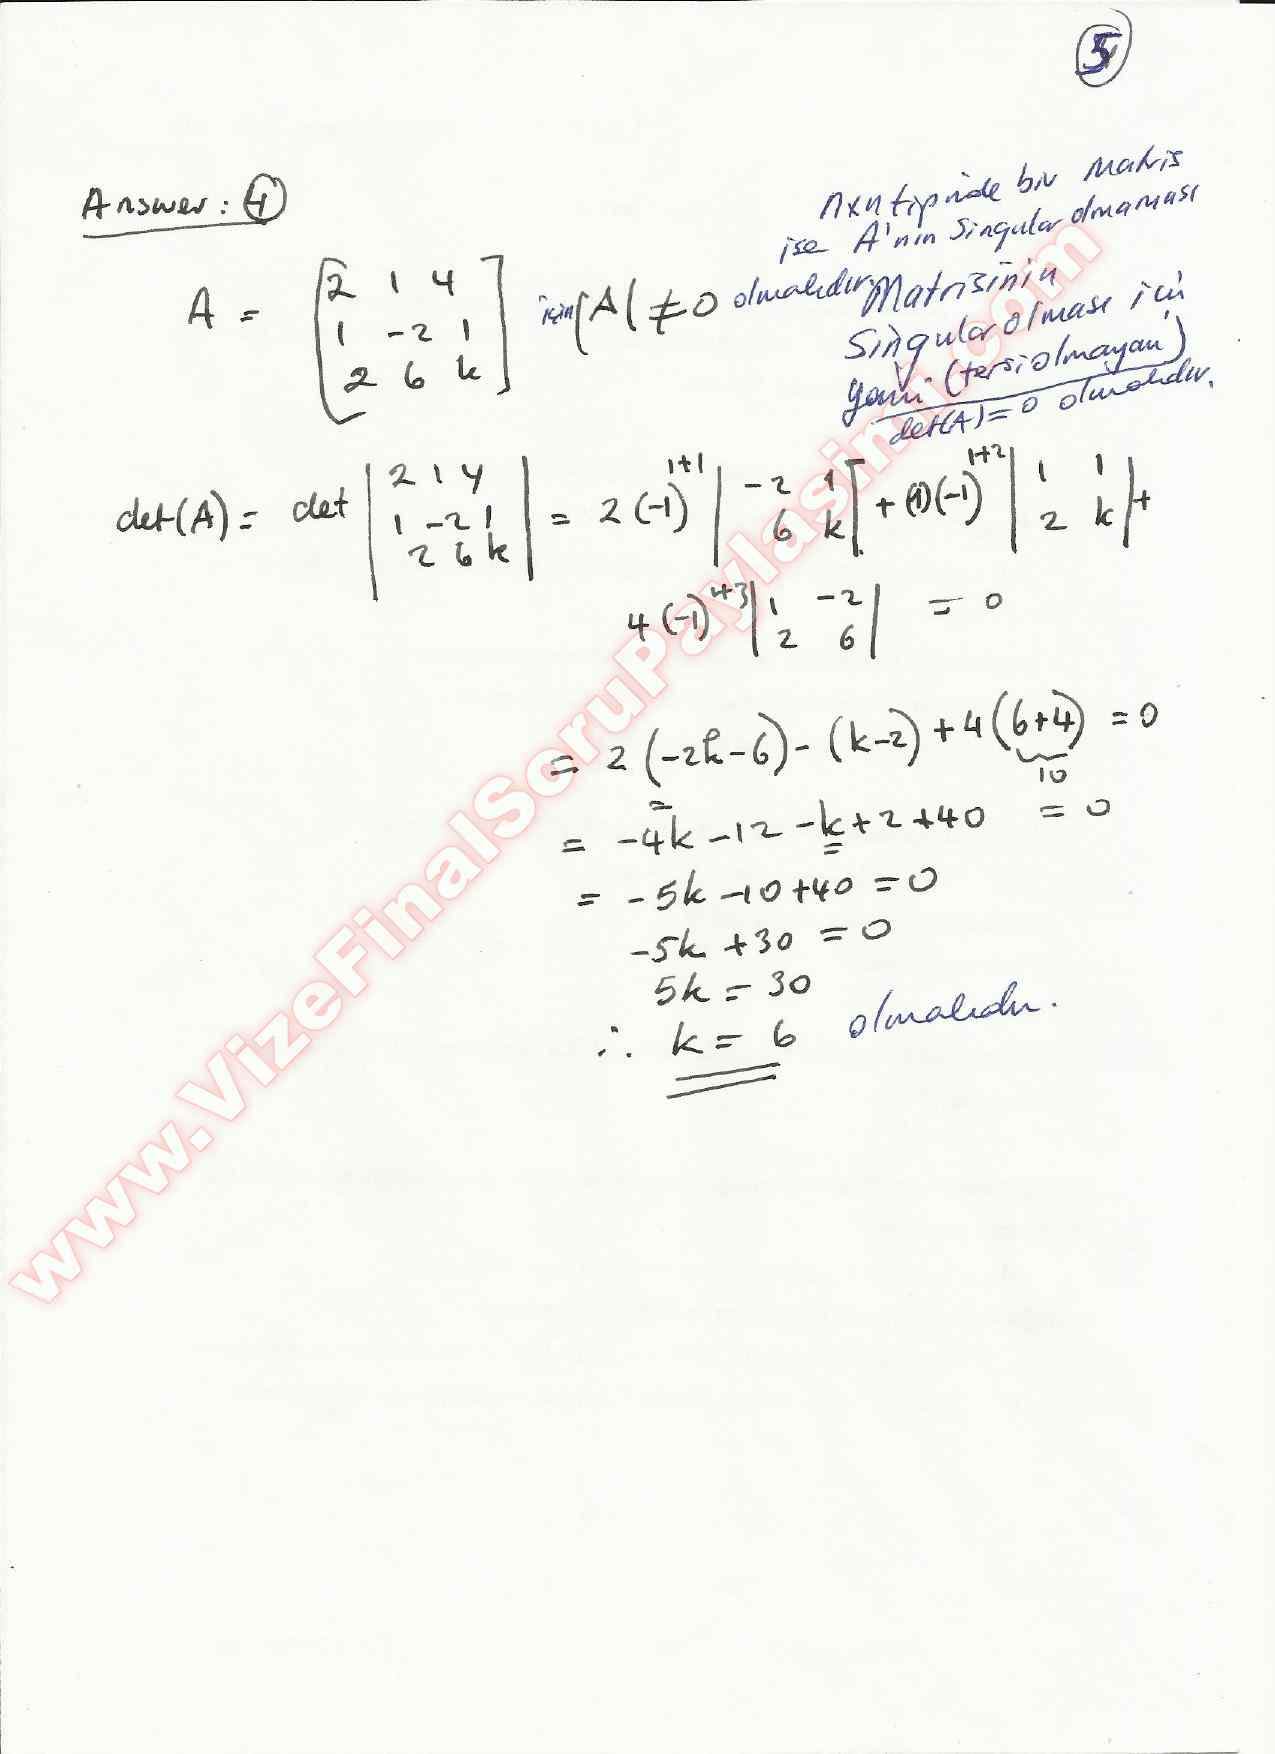 5
Answer: 4
nxn tipinde bir Matris
ise A'nın Singular olmaması
A = [ 2 1 4
1 -2 1
2 6 k ] için |A| ≠ 0 olmalıdır.
Matrisinin
Singular olması için
yani (tersi olmayan)
det(A) = 0 olmalıdır.
det(A) = det | 2 1 4
1 -2 1
2 6 k | = 2(-1)^1+1 | -2 1
6 k | + (1)(-1)^1+2 | 1 1
2 k | +
4(-1)^1+3 | 1 -2
2 6 | = 0
= 2(-2k-6) - (k-2) + 4(6+4) = 0
10
= -4k -12 -k +2 +40 = 0
= -5k -10 +40 = 0
-5k +30 = 0
5k = 30
∴ k = 6 olmalıdır.
www.VizeFinalSoruPaylasimi.com